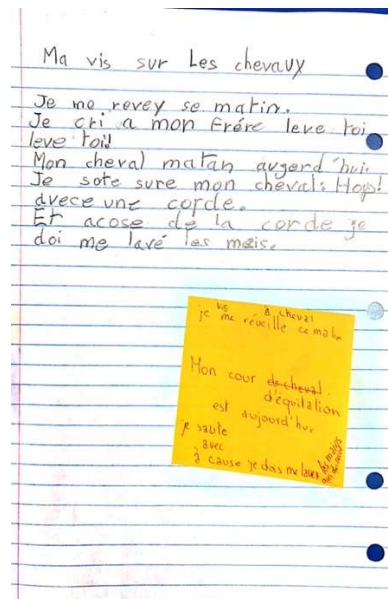 Ma vis sur Les chevauy
Je me revey se matin.
Je cri a mon Frére leve toi
leve toi!
Mon cheval matan augerd'hui.
Je sote sure mon cheval. Hop!
avece une corde.
Et acose de la corde je
doi me lavé les mais.
vis à cheval
je me réveille ce matin
Mon cour de cheval
d'équitation
est aujourd'hui
je saute
avec
à cause je dois me laver les mains